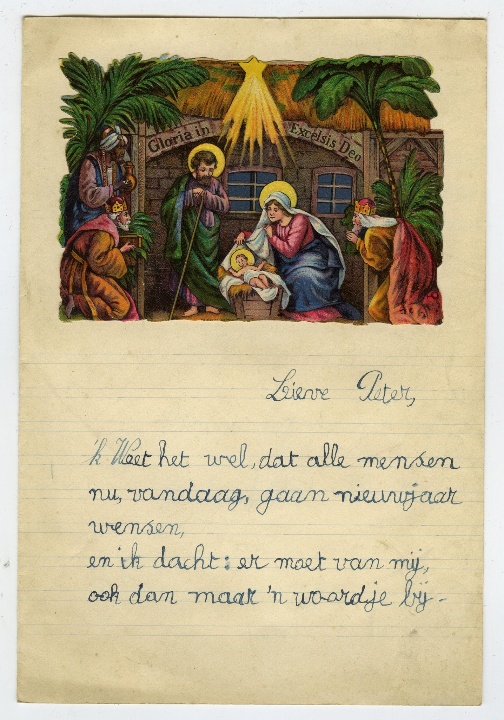 Gloria in Excelsis Deo
Lieve Peter,
'k Weet het wel, dat alle mensen
nu, vandaag, gaan nieuwjaar
wensen,
en ik dacht: er moet van mij,
ook dan maar 'n woordje bij-